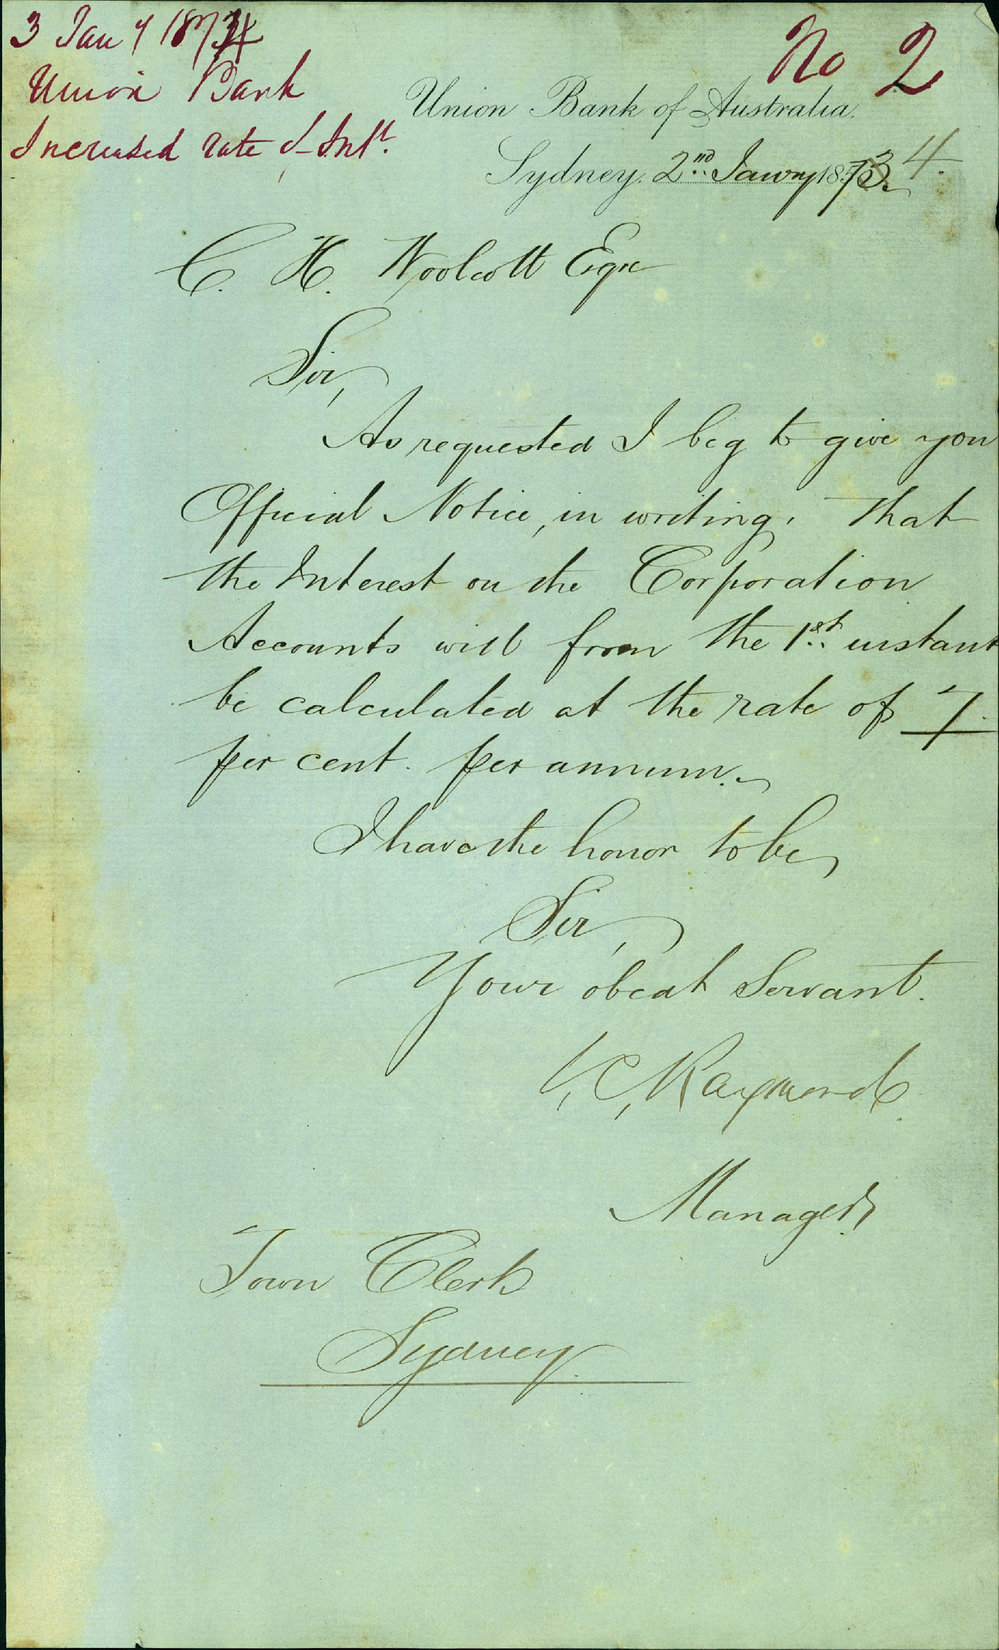 3 Jany 1874
Union Bank
Increased rate of Intt.
No 2
Union Bank of Australia.
Sydney. 2nd Jawny 1873. 4.
C. H. Woolcott Esqre
Sir,
As requested I beg to give you
Official Notice, in writing, that
the Interest on the Corporation
Accounts will from the 1st instant
be calculated at the rate of 7.
per cent. per annum.
I have the honor to be,
Sir,
Your obedt Servant.
Raymond
Manager.
Town Clerk
Sydney.